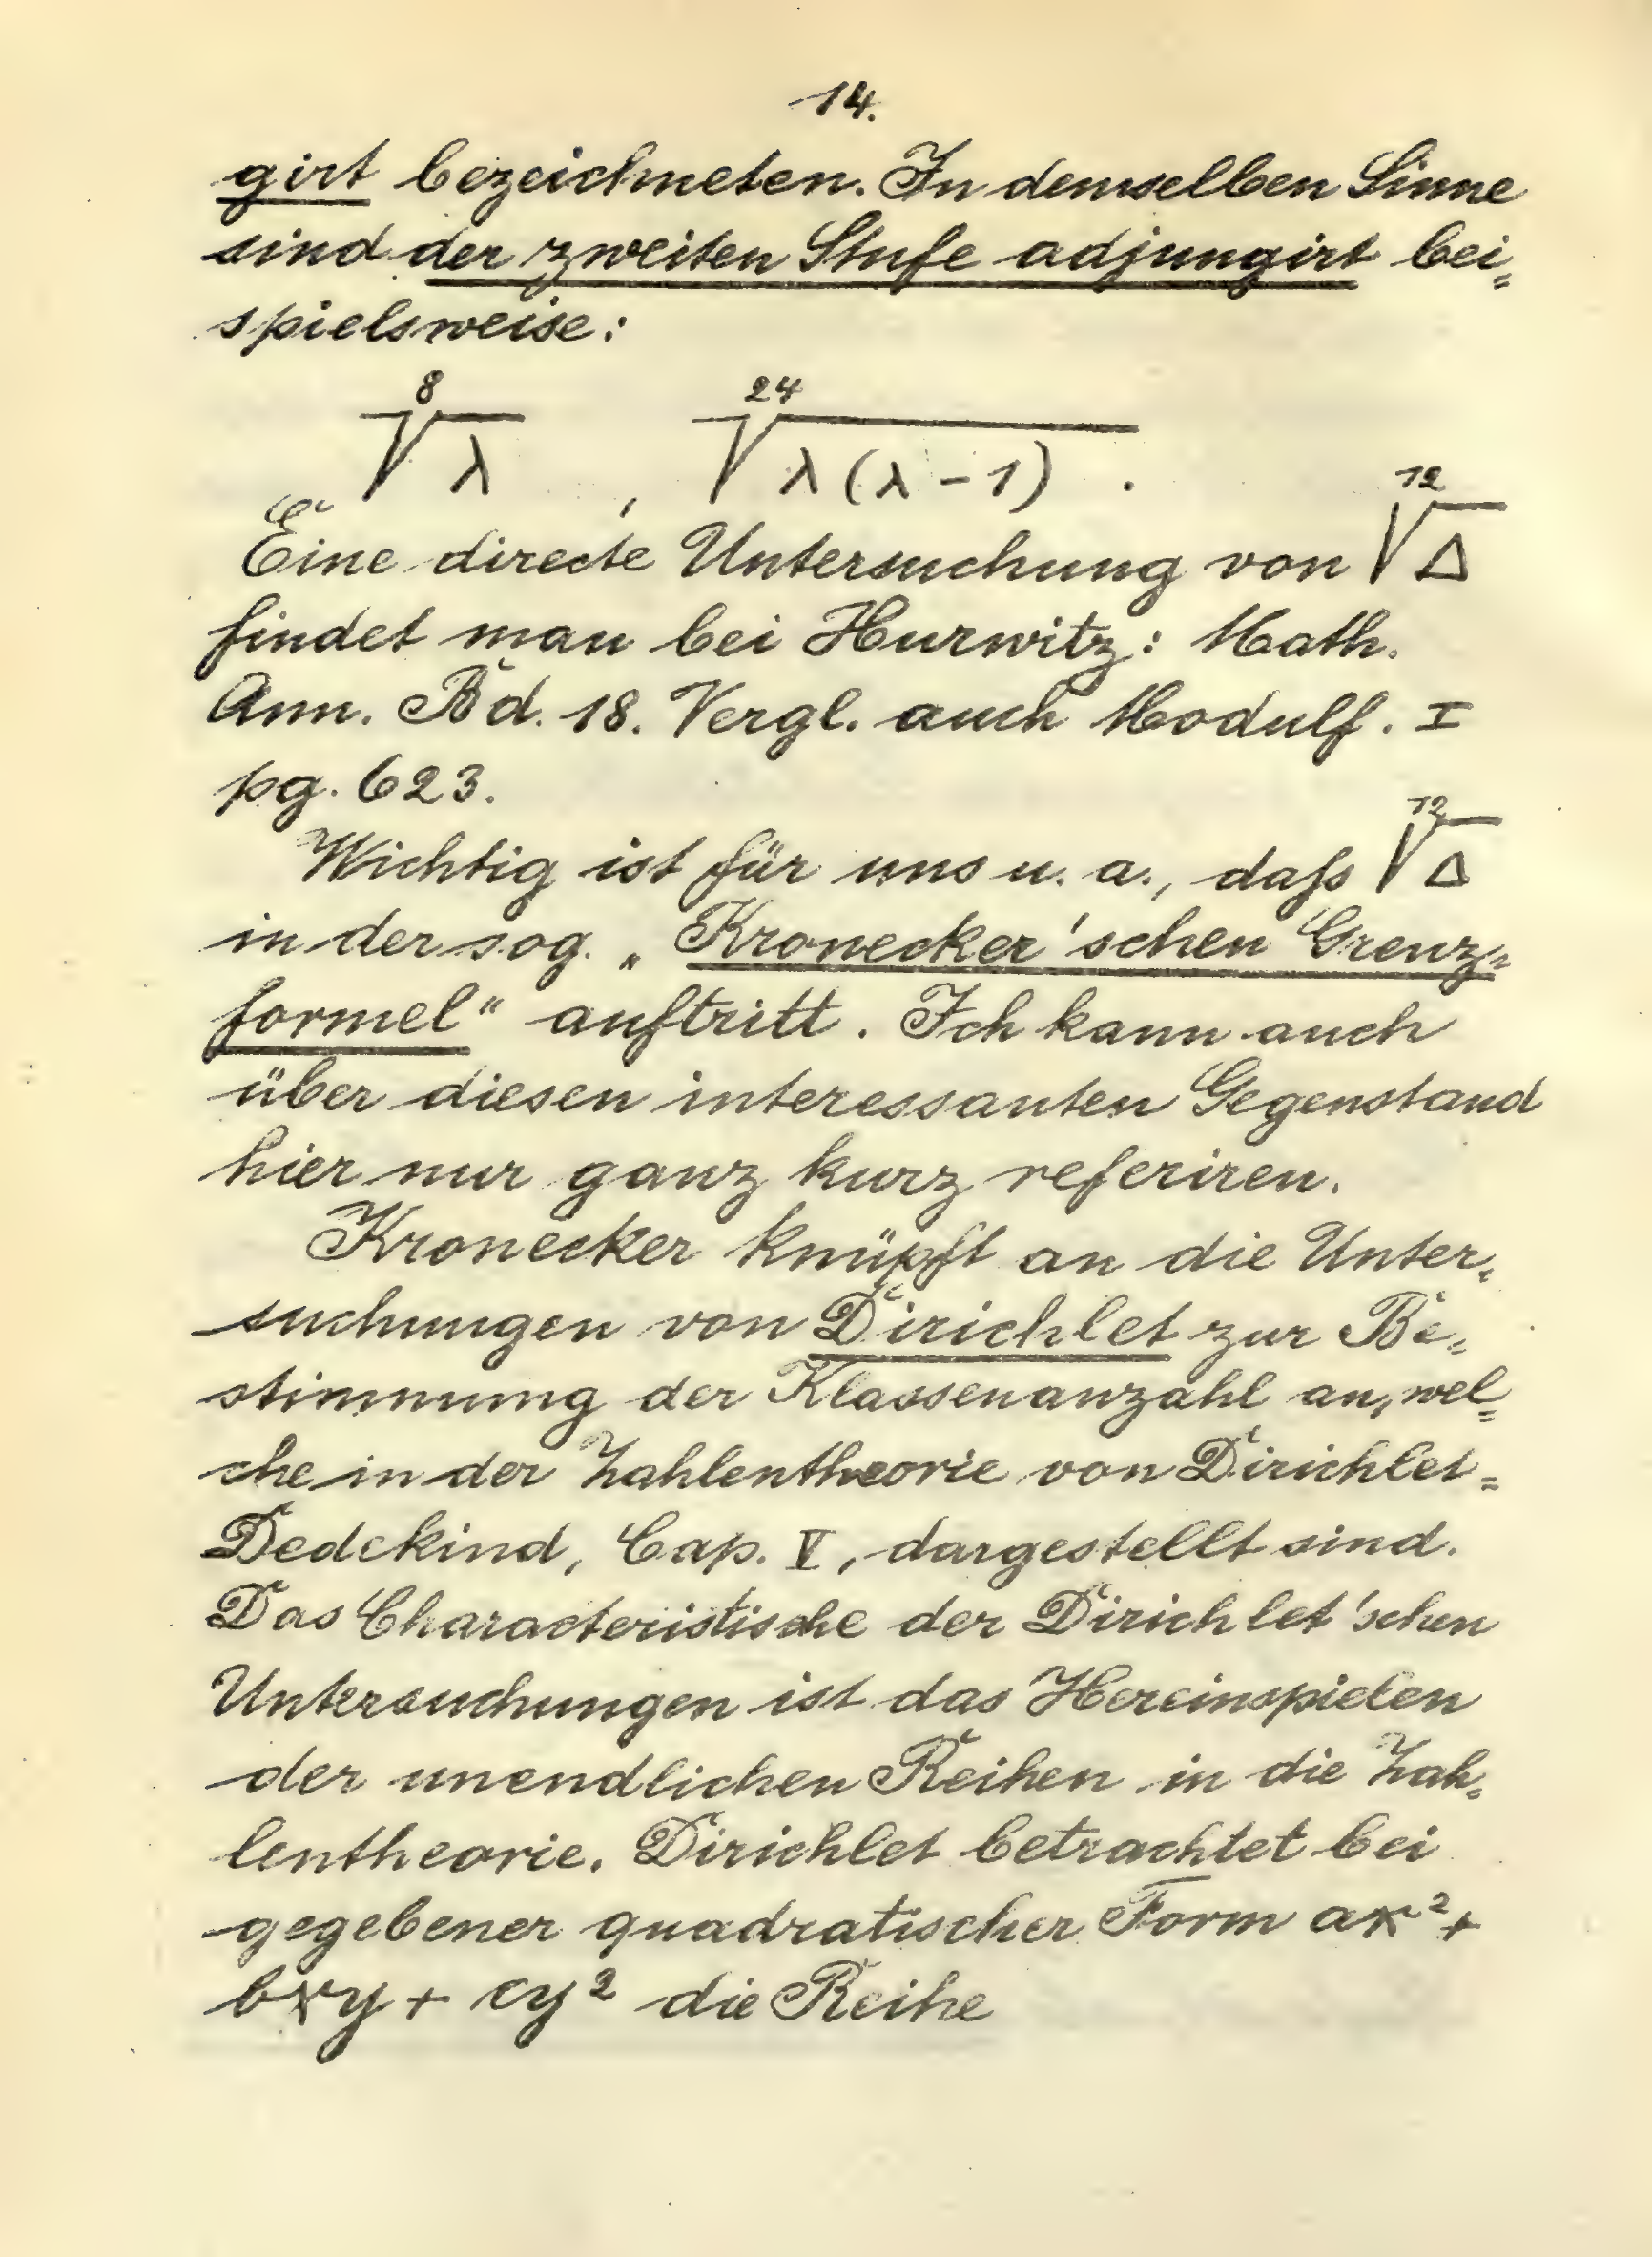 14.
girt bezeichneten. In demselben Sinne
sind der zweiten Stufe adjungirt bei=
spielsweise:
$\sqrt[8]{\lambda}$ , $\sqrt[24]{\lambda(\lambda-1)}$ .
Eine directe Untersuchung von $\sqrt[12]{\Delta}$
findet man bei Hurwitz: Math.
Ann. Bd. 18. Vergl. auch Modulf. I
pg. 623.
Wichtig ist für uns u. a., daß $\sqrt[12]{\Delta}$
in der sog. „Kronecker'schen Grenz=
formel“ auftritt. Ich kann auch
über diesen interessanten Gegenstand
hier nur ganz kurz referiren.
Kronecker knüpft an die Unter=
suchungen von Dirichlet zur Be=
stimmung der Klassenanzahl an, wel=
che in der Zahlentheorie von Dirichlet=
Dedekind, Cap. V, dargestellt sind.
Das Characteristische der Dirichlet'schen
Untersuchungen ist das Hereinspielen
der unendlichen Reihen in die Zah=
lentheorie. Dirichlet betrachtet bei
gegebener quadratischer Form ax²+
bxy + cy² die Reihe